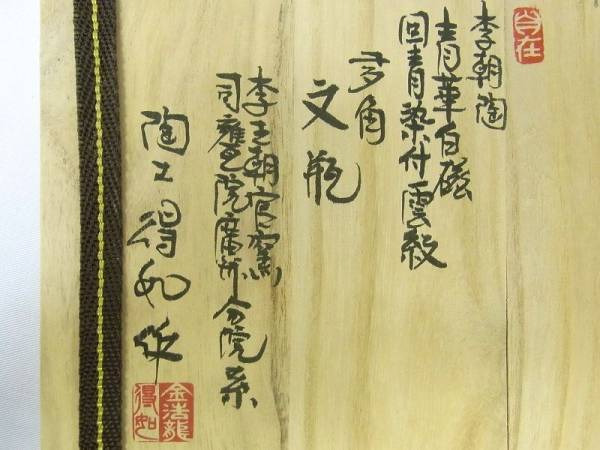 自在
李朝陶
青華白磁
回青染付雲紋
多角
文瓶
李王朝官窯
司饔院廣州分院系
陶士得如作
金浩龍
得如